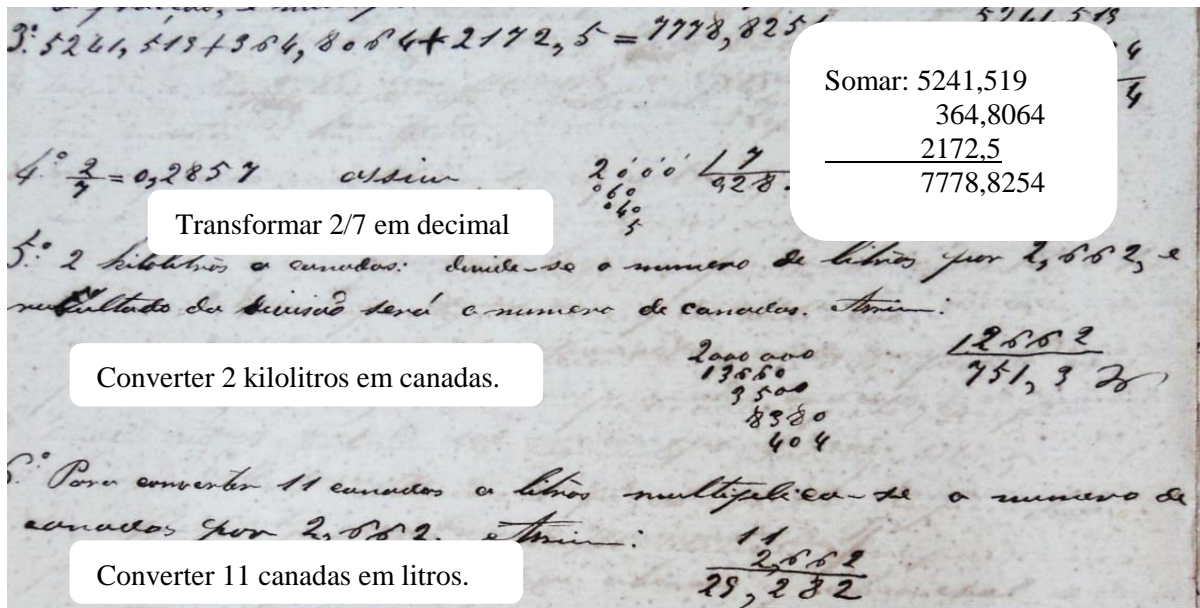 3º 5241,519+364,8064+2172,5=7778,825
5241,519
4
4
Somar: 5241,519
364,8064
2172,5
7778,8254
4º 2/7=0,2857 assim 2000 7
060
040
5
Transformar 2/7 em decimal
5º 2 kilolitros a canadas: divide-se o numero de litros por 2,662, e
resultado da divisão será o numero de canadas. Assim:
2000000 2662
13660 751,3
3500
8380
404
Converter 2 kilolitros em canadas.
6º Para converter 11 canadas a litros multiplica-se o numero de
canadas por 2,662. Assim:
11
2,662
29,282
Converter 11 canadas em litros.